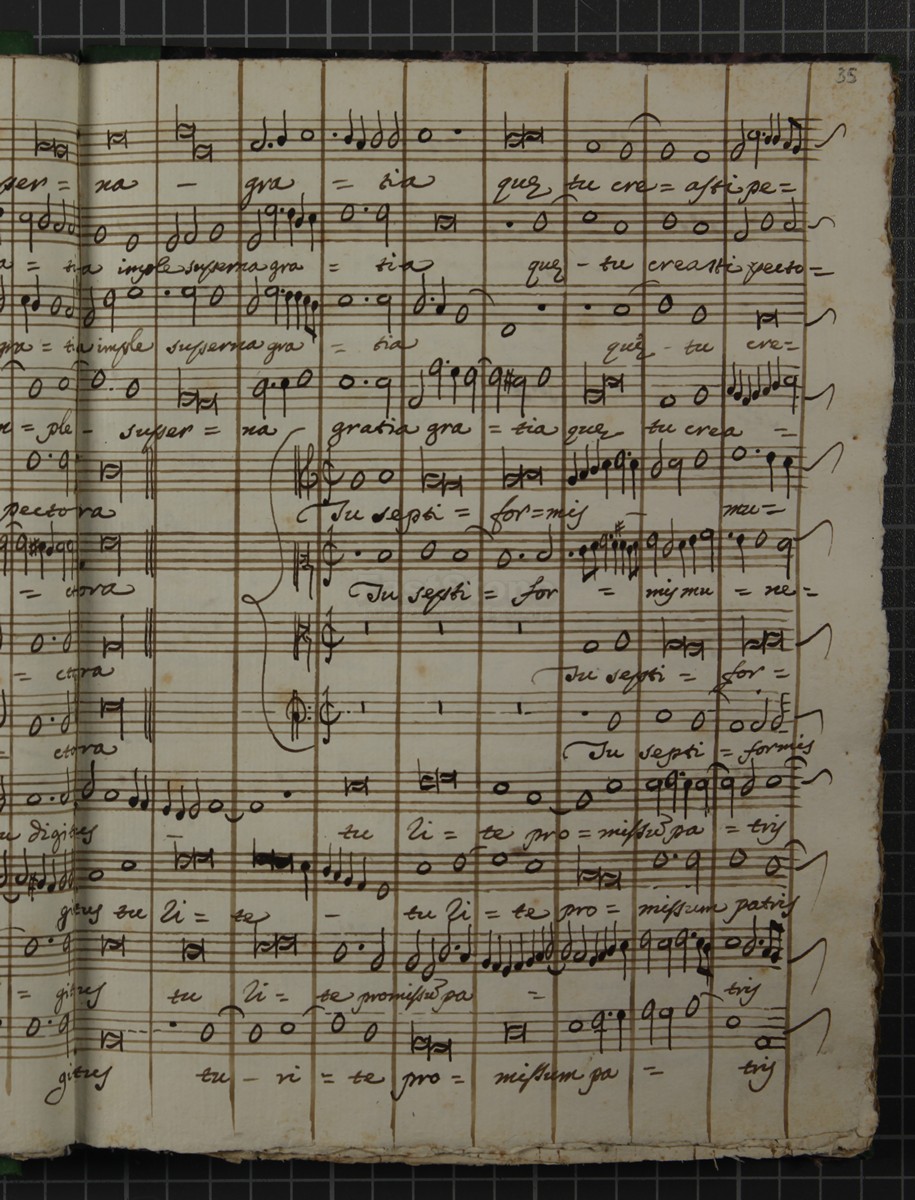 35
per = na - gra = tia quę tu cre = asti pe =
a = tia imple superna gra = tia quę - tu creasti pecto =
gra = tia imple superna gra = tia quę - tu cre =
= ple - super = na gratia gra = tia quę tu crea =
pectora Tu septi = for = mis - mu =
= ctora Tu septi = for = mis mu = ne =
= ctora Tu septi = for =
= ctora Tu septi = formis
digitus - tu ri = te pro = missũ pa = tris
gitus tu ri = te - tu ri = te pro = missum patris
= gitus tu ri = te promissũ pa = tris
gitus tu - ri = te pro = missum pa = tris